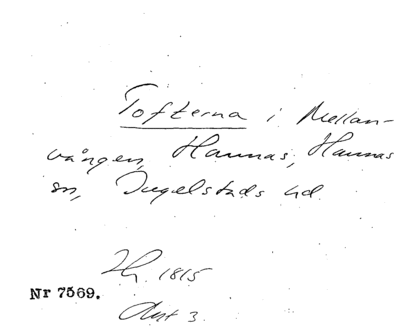 Tofterna i Mellan-
vången, Hannas, Hannas
sn, Ingelstads hd.
Lh. 1815
Nr 7569.
Akt 3.